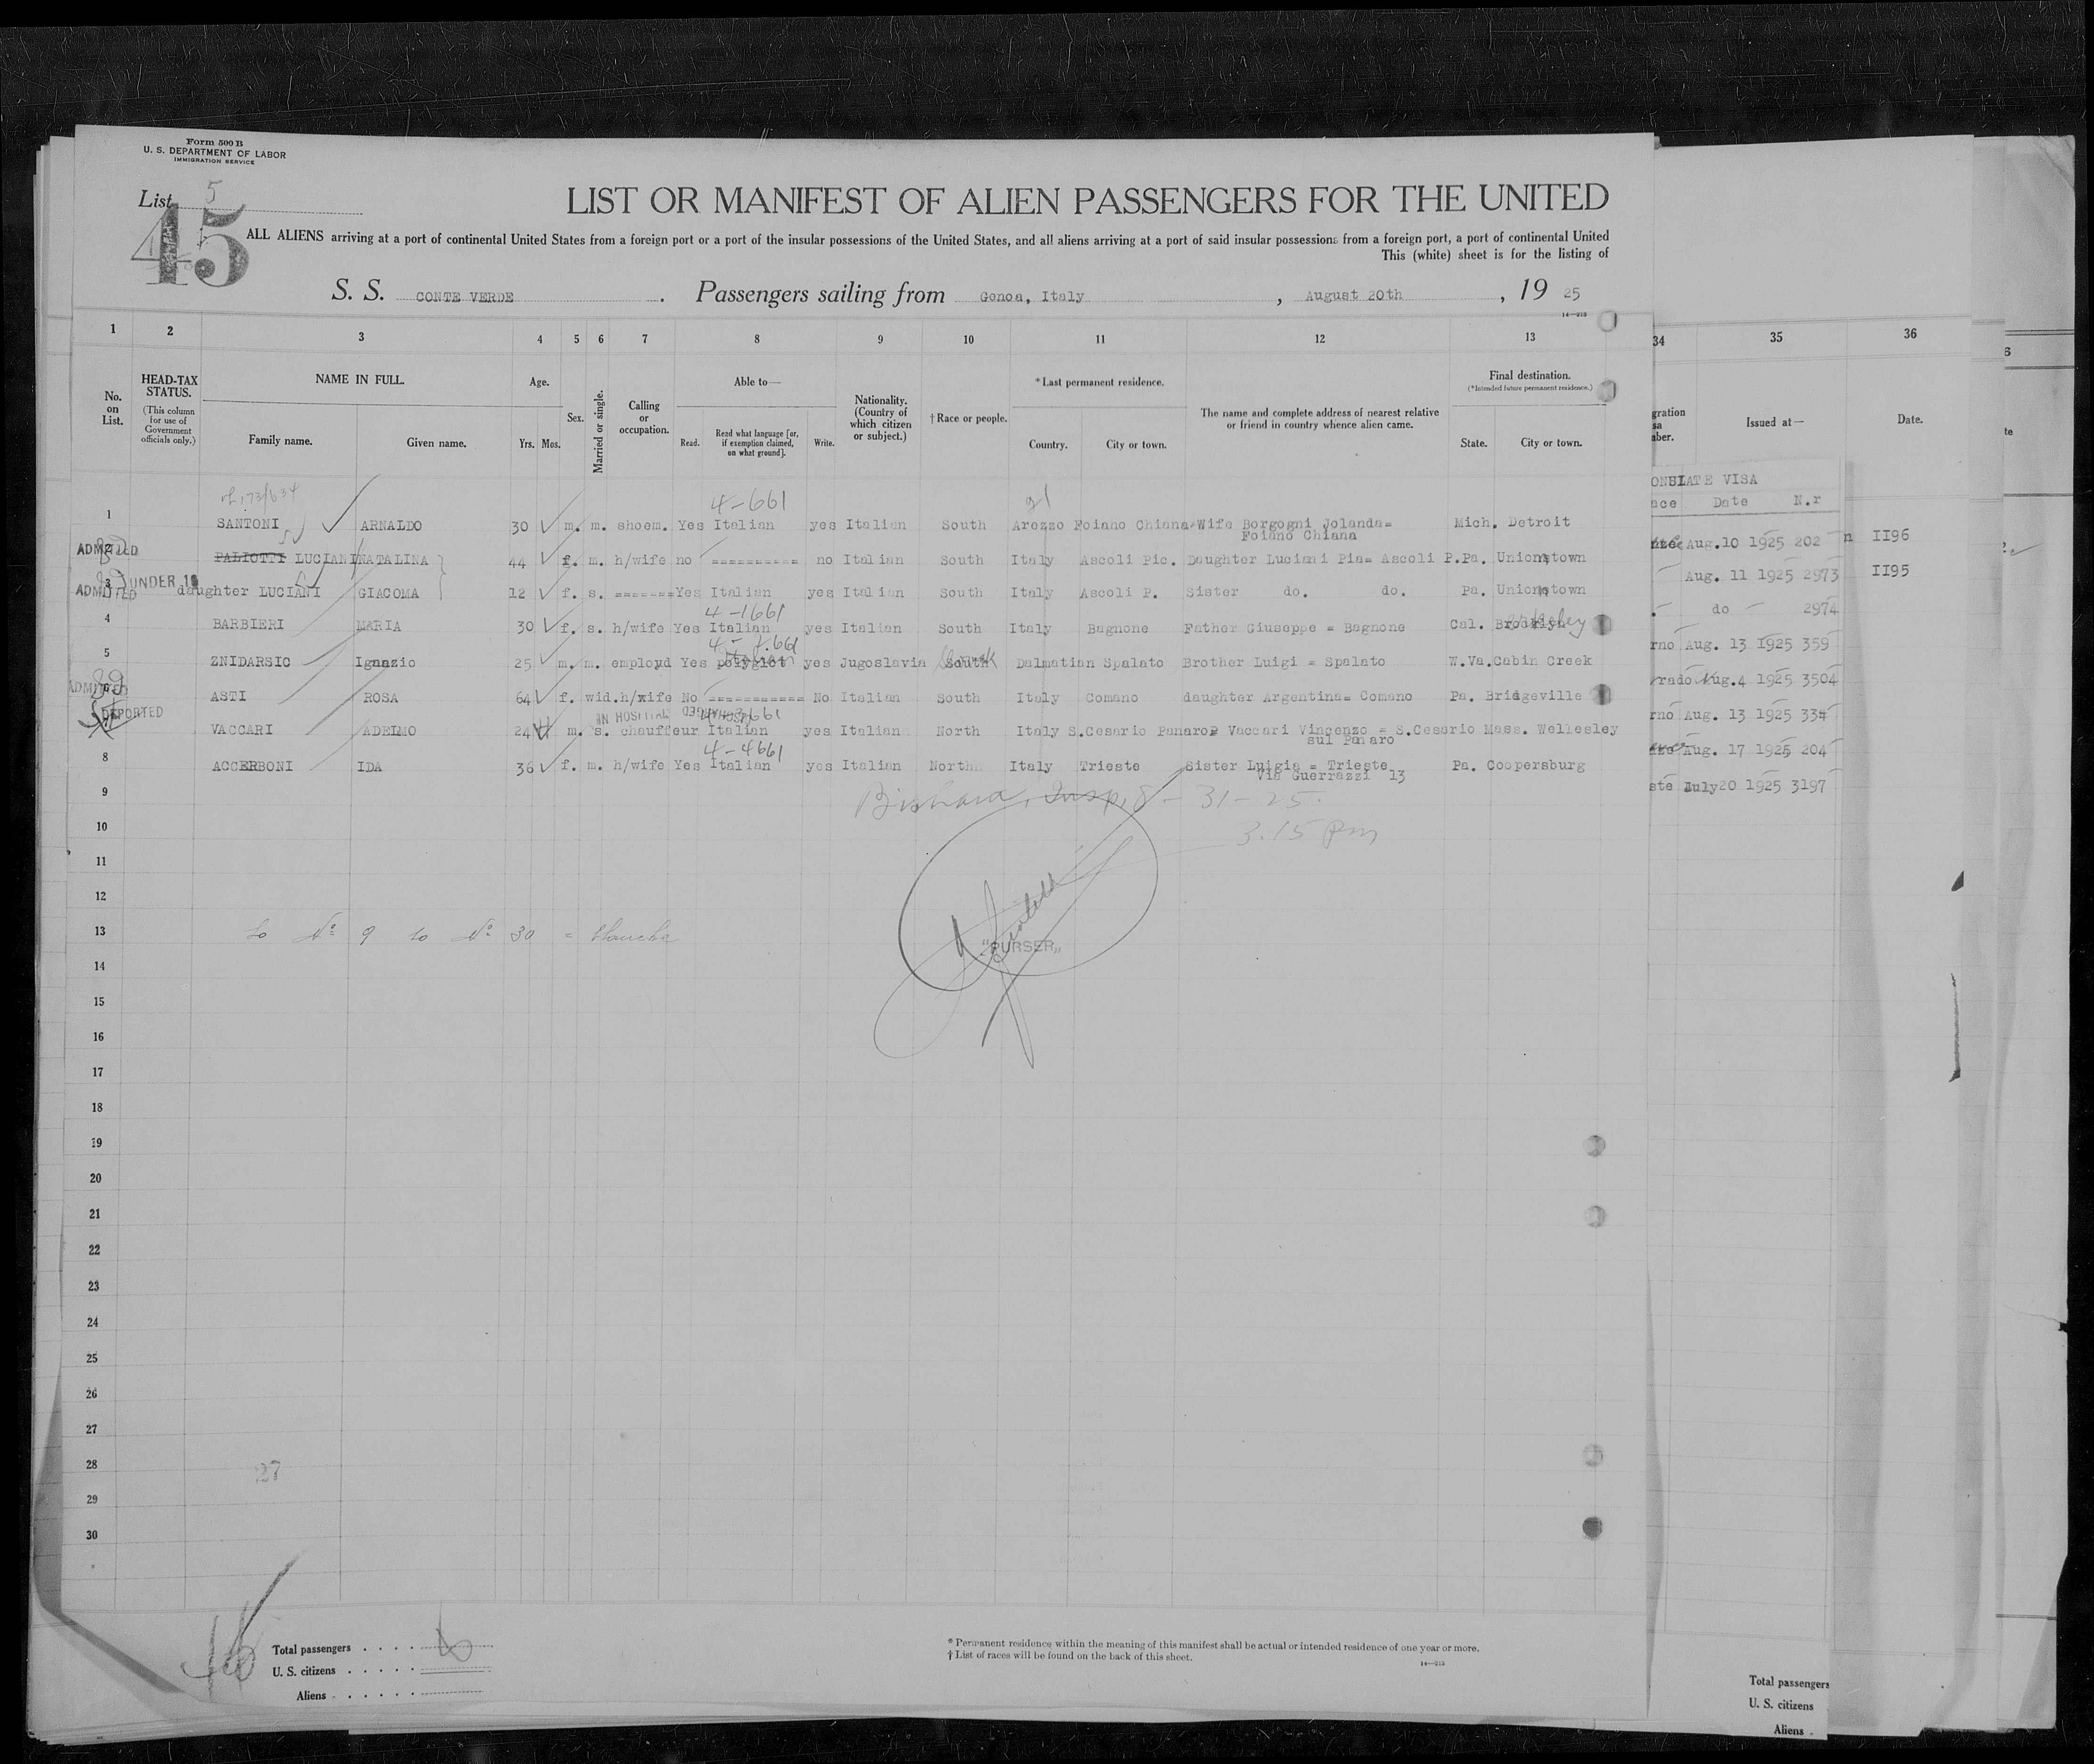 Form 500 B
U. S. DEPARTMENT OF LABOR
IMMIGRATION SERVICE
List 5
45
LIST OR MANIFEST OF ALIEN PASSENGERS FOR THE UNITED
ALL ALIENS arriving at a port of continental United States from a foreign port or a port of the insular possessions of the United States, and all aliens arriving at a port of said insular possessions from a foreign port, a port of continental United
This (white) sheet is for the listing of
S. S. CONTE VERDE. Passengers sailing from Genoa, Italy, August 20th, 19 25
14—213
1 2 3 4 5 6 7 8 9 10 11 12 13 34 35 36
No. on List.
HEAD-TAX STATUS.
(This column for use of Government officials only.)
NAME IN FULL.
Family name. Given name.
Age.
Yrs. Mos.
Sex.
Married or single.
Calling or occupation.
Able to—
Read. Read what language [or, if exemption claimed, on what ground]. Write.
Nationality. (Country of which citizen or subject.)
†Race or people.
*Last permanent residence.
Country. City or town.
The name and complete address of nearest relative or friend in country whence alien came.
Final destination.
(*Intended future permanent residence.)
State. City or town.
Issued at—
Date.
VISA
Date N.r
4-661
1 SANTONI ARNALDO 30 m. m. shoem. Yes Italian yes Italian South Arezzo Foiano Chiana Wife Borgogni Jolanda= Mich. Detroit
Foiano Chiana
Aug.10 1925 202 II96
ADMITTED
2 PALIOTTI LUCIANI NATALINA 44 f. m. h/wife no ========== no Italian South Italy Ascoli Pic. Daughter Luciani Pia= Ascoli P. Pa. Uniontown
Aug. 11 1925 2973 II95
UNDER 16
ADMITTED
3 daughter LUCIANI GIACOMA 12 f. s. ======= Yes Italian yes Italian South Italy Ascoli P. Sister do. do. Pa. Uniontown
do 2974
4-1661
4 BARBIERI MARIA 30 f. s. h/wife Yes Italian yes Italian South Italy Bagnone Father Giuseppe = Bagnone Cal. Brooklyn
rno Aug. 13 1925 359
5 ZNIDARSIC Ignazio 25 m. m. employd Yes polyglot yes Jugoslavia South Dalmatian Spalato Brother Luigi = Spalato W.Va. Cabin Creek
rado Aug.4 1925 3504
ADMITTED
6 ASTI ROSA 64 f. wid. h/wife No =========== No Italian South Italy Comano daughter Argentina= Comano Pa. Bridgeville
rno Aug. 13 1925 334
DEPORTED
IN HOSPITAL
7 VACCARI ADELMO 24 m. s. chauffeur Italian yes Italian North Italy S.Cesario Panaro Vaccari Vincenzo = S.Cesario Mass. Wellesley
sul Panaro
Aug. 17 1925 204
4-4661
8 ACCERBONI IDA 36 f. m. h/wife Yes Italian yes Italian North Italy Trieste Sister Luigia = Trieste Pa. Coopersburg
Via Guerrazzi 13
ste July20 1925 3197
9
Insp. 8-31-25.
10
3.15 pm
11
12
13
No 9 to No 30 =
"PURSER"
14
15
16
17
18
19
20
21
22
23
24
25
26
27
28
27
29
30
Total passengers
U. S. citizens
Aliens
* Permanent residence within the meaning of this manifest shall be actual or intended residence of one year or more.
† List of races will be found on the back of this sheet.
14—213
Total passengers
U. S. citizens
Aliens